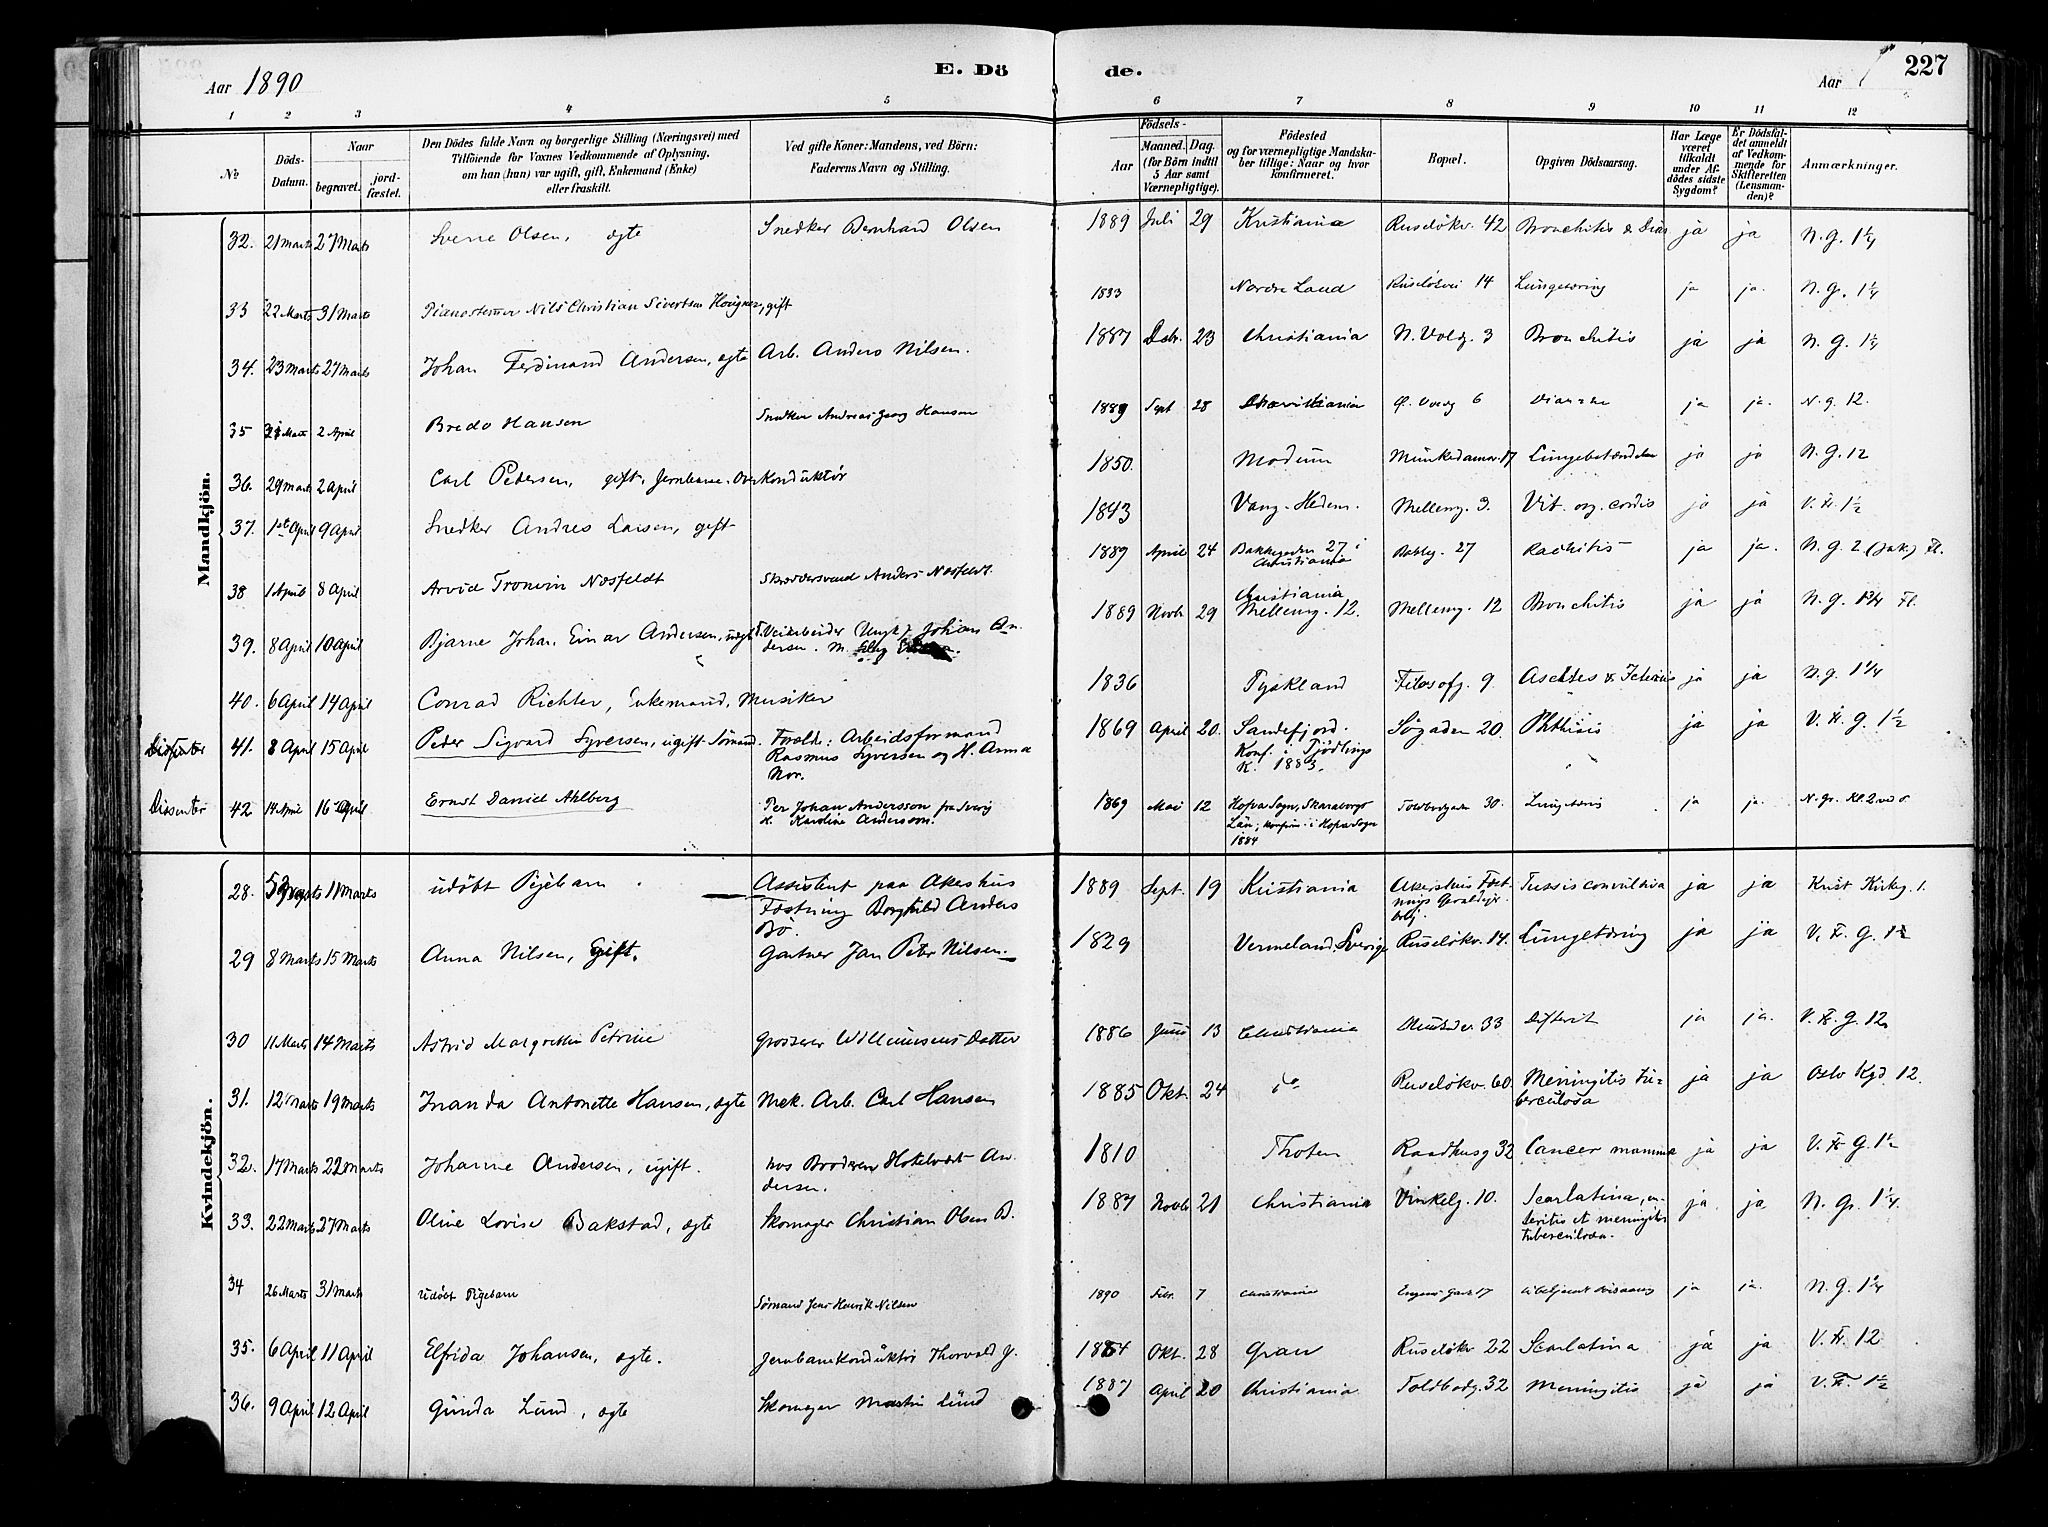 Aar 1890
E. Dö
de.
Aar
227
1 2 3 4 5 6 7 8 9 10 11 12
No
Döds-Datum.
Naar
begravet.
jord-fæstet.
Den Dödes fulde Navn og borgerlige Stilling (Næringsvei) med
Tilföiende for Voxnes Vedkommende af Oplysning,
om han (hun) var ugift, gift, Enkemand (Enke)
eller fraskilt.
Ved gifte Koner: Mandens, ved Börn:
Faderens Navn og Stilling.
Födsels-
Aar
Maaned.
Dag.
(for Börn indtil
5 Aar samt
Værnepligtige).
Födested
og for værnepligtige Mandska-
ber tillige: Naar og hvor
konfirmeret.
Bopæl.
Opgiven Dödsaarsag.
Har Læge
været
tilkaldt
under Af-
dödes sidste
Sygdom?
Er Dödsfal-
det anmeldt
af Vedkom-
mende for
Skifteretten
(Lensman-
den)?
Anmærkninger.
Mandkjön.
32. 21 Marts 27 Marts Sverre Olsen, ægte Snedker Bernhard Olsen 1889 Juli 29 Kristiania Ruselökv. 42 Bronchitis & ja ja N. G. 1/4
33 22 Marts 31 Marts Pianostemmer Nils Christian Sivertsen gift 1833 Nordre Land Ruselökvei 14 Lungetæring ja ja. N. G. 1/4
34. 23 Marts 27 Marts Johan Ferdinand Andersen, ægte Arb. Anders Nilsen. 1887 Debr. 23 Christiania N. Voldg. 3 Bronchitis ja ja N. G. 1/4
35 31 Marts 2 April Bredo Hansen Snedker Andreas Georg Hansen 1889 Sept 28 Christiania Ø. Voldg 6 ja ja. N. g. 12.
36. 29 Marts 2 April Carl Pedersen, gift, Jernbane-Overkonduktör 1850. Modum Munkedamsv. 17 Lungebetændelse ja ja N. G. 12
37. 1st April 9 April Snedker Andres Larsen, gift 1843 Vang. Hedem. Mellemg. 3. Vit. org. cordis ja ja V. Fr. 1/2
38 1 April 8 April Arvid Tronvin Næsfeldt Skræddersvend Anders Næsfeldt. 1889 April 24 Bakkegaden 27 i
Christiania Bakkg. 27 Rachitis ja ja. N. G. 2. (Jak.) Fl.
39. 8 April 10 April Bjarne Johan Einar Andersen, Veiarbeider (Ungk.) Johan An-
dersen. M. 1889 Novb. 29 Christiania
Mellemg. 12. Mellemg. 12 Bronchitis ja ja N. G. Fl.
40. 6 April 14 April Conrad Richter, Enkemand, Musiker 1836 Tyskland Filosofg. 9 Ascites & Icterus ja ja N. g. 1/4
Dissenter 41. 8 April 15 April Peder Sigvard Syversen, ugift Sömand. Foreldr: Arbeidsformand
Rasmus Syversen og H. Anna
Mor. 1869 April 20. Sandefjord.
Konf. i Tjödlings
K. 1883. Sögaden 20 Phthisis ja ja V. Fr. G. 1/2
Dissenter 42 14 April 16 April Ernst Daniel Ahlberg Per Johan Andersson fra Sverig
H. Karoline Andersson. 1869 Mai 12 Hofva Sogn, Skaraborgs
Län; konfirm. i Hofva Sogn
1884 Toldbodgaden 30. ja ja. N. Gr. Kl. 2
Kvindekjön.
28. Marts 11 Marts udöbt Pigebarn Assistent paa Akershus
Fæstning Anders
Bö. 1889 Sept. 19 Kristiania Akershus Fæst-
nings Tussis convulsiva ja ja Krist Kirkeg. 1.
29 8 Marts 15 Marts Anna Nilsen, Gift. Gartner Jan Peter Nilsen. 1829 Vermeland, Sverige Ruselökv. 14. Lungetæring ja ja V. F. G.
30 11 Marts 14 Marts Astrid Margrethe Petrine Grosserer Willumsens Datter 1886 Juni 13 Christiania 33 Difterit ja ja. V. Fr. G. 12
31. 12 Marts 19 Marts Antonette Hansen, ægte Mek. Arb. Carl Hansen 1885 Okt. 24 Ruselökv. 60. Meningitis tu-
berculosa ja ja Oslo Kgd 12.
32. 17 Marts 22 Marts Johanne Andersen, ugift. hos Broderen Hotelvært An-
dersen. 1810 Thoten Raadhusg 32 Cancer mamma ja ja V. Fr G. 1/2
33. 22 Marts 27 Marts Oline Lovise Bakstad, ægte Skomager Christian Olsen B. 1887 Novb. 21 Christiania Vinkelg. 10. Scarlatina, en-
teritis et meningitis
tuberculosa. ja ja N. Gr. 1/4.
34 26 Marts 31 Marts Udöbt Pigebarn Sömand Jens Henrik Nilsen 1890 Febr. 7 Christiania 17 ja ja. N. G. 1/4
35. 6 April 11 April Elfrida Johansen, ægte. Jernbanekonduktör Thorvald J. 1884 Okt. 28 Gran Ruselökv 22 Scarlatina ja ja V. Fr. 12
36. 9 April 12 April Gunda Lund, ægte Skomager Martin Lund 1887 April 20 Christiania Toldbodg. 32 Meningitis ja ja V. Fr. 1/2